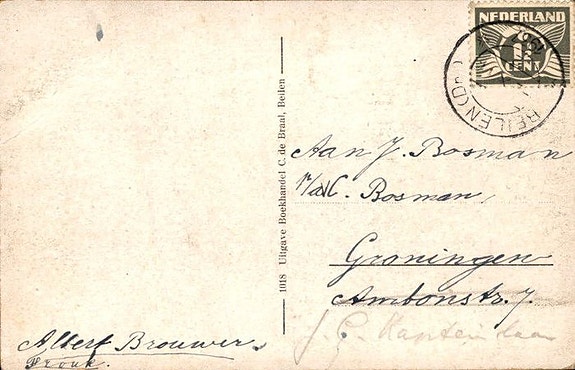 NEDERLAND
1½
CENT
BEILEN (DR.)
1018 Uitgave Boekhandel C. de Braal, Beilen
Aan J. Bosman
p/a C. Bosman,
Groningen
Ambonstr. 7.
J. C. Kapteinlaan
Albert Brouwer